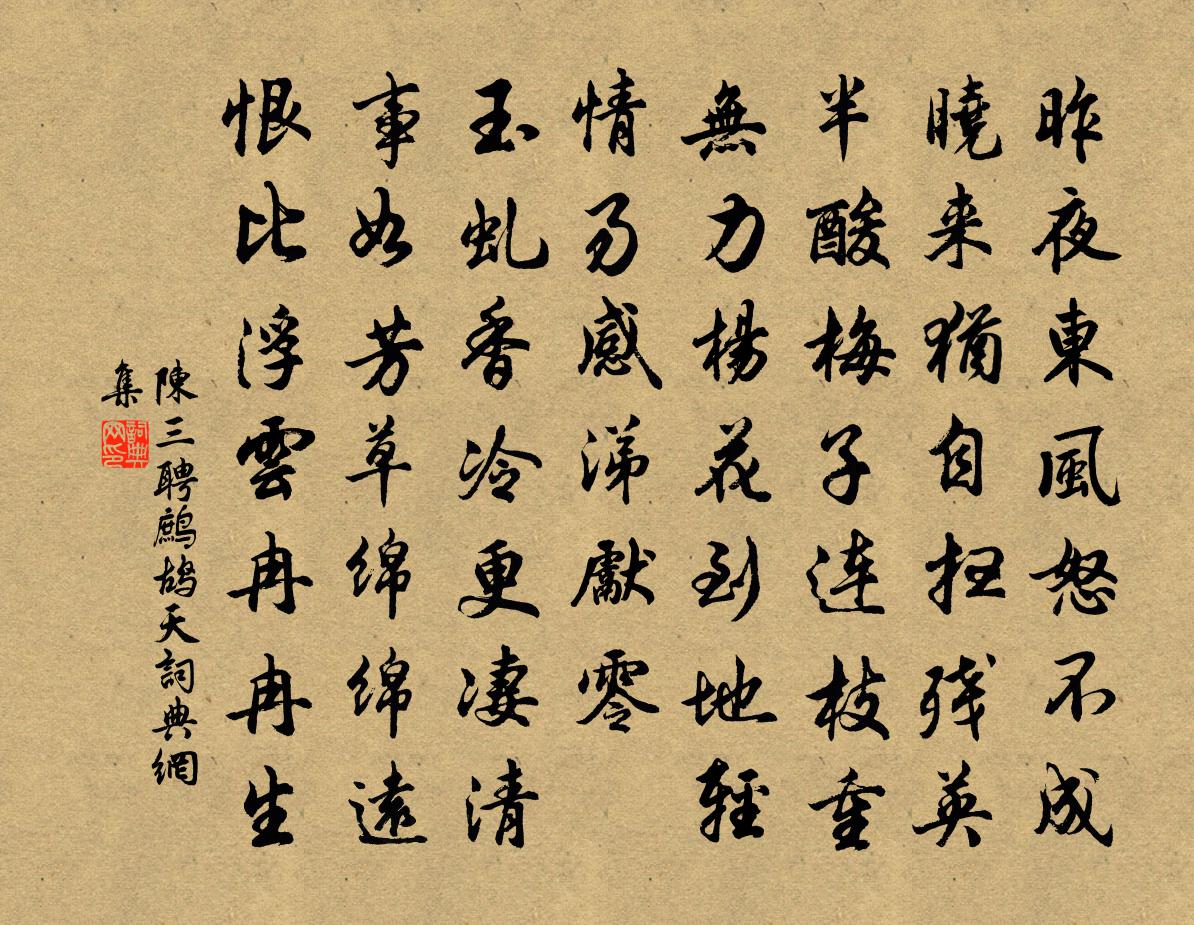 昨夜東風怒不成
曉来猶自扫残英
半酸梅子連枝重
無力楊花到地輕
情易感涕獻零
玉虬香冷更凄清
事如芳草绵绵遠
恨比浮雲冉冉生
陳三聘鷓鴣天詞典網
集
詞典
网印